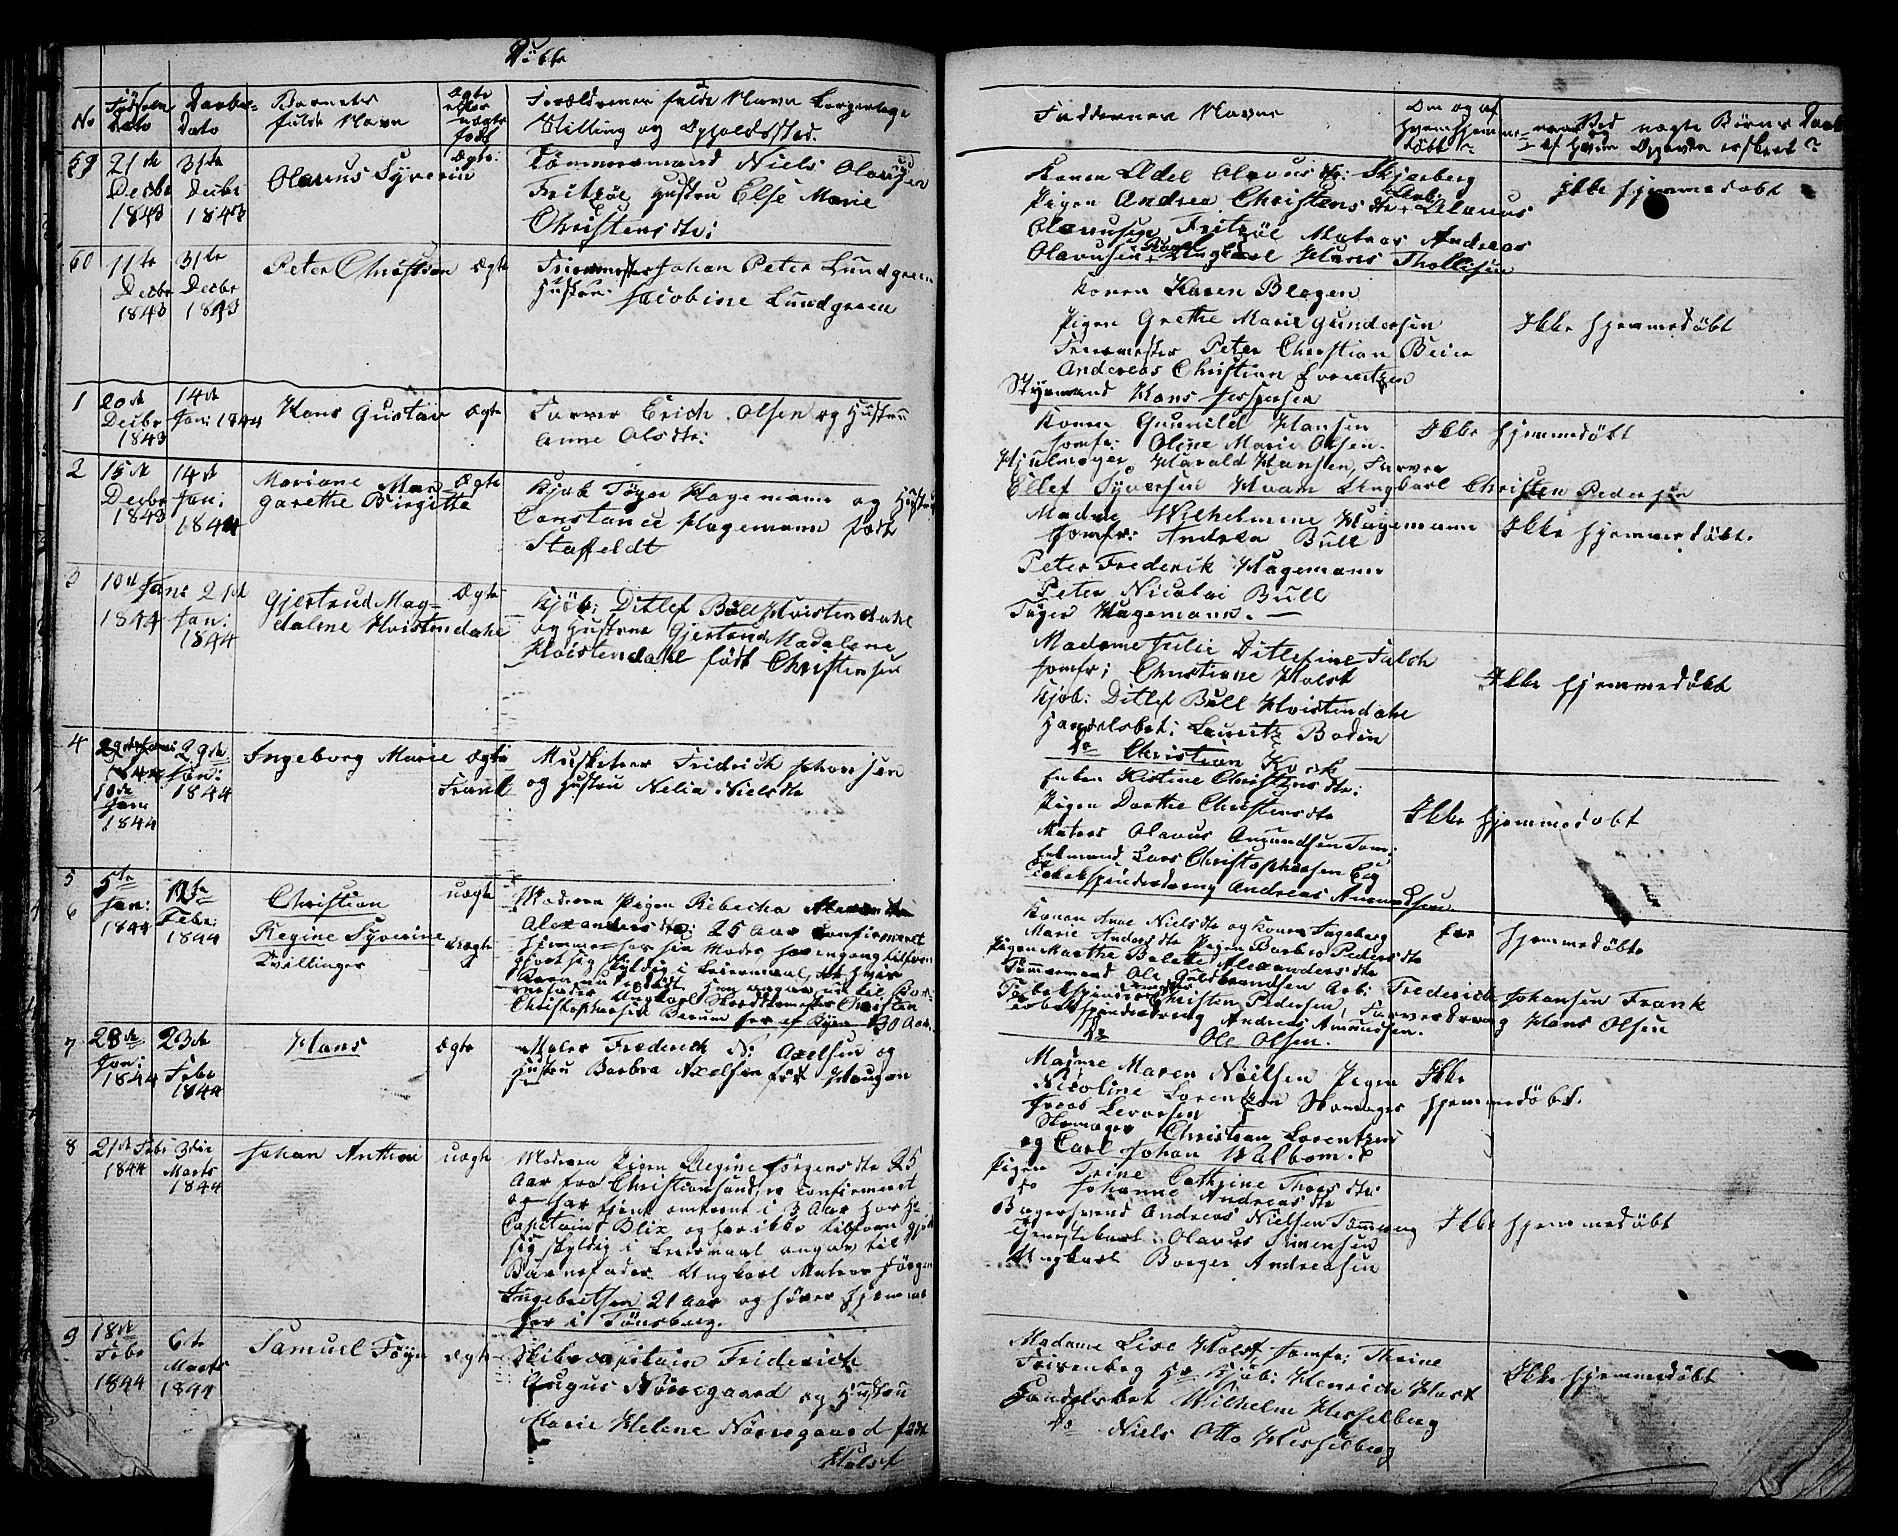 Døbte
No
Fødsels Dato
Daabs-Dato
Barnets fulde Navn
Ægte eller uægte født
Forældrenes fulde Navn Borgerlige
Stilling og Opholdssted.
59
21de Decbr 1843
31te Decbr 1843
Olavus Syverin
Ægte:
Tømmermand Niels Olavusen
Fritzøe Hustru Else Marie
Christensdtr:
60
11te Decbr 1843
31te Decbr 1843
Peter Christian
Ægte
Johan Peter Lundgreen
Hustru Jacobine Lundgreen
1
20de Decbr 1843
14de Jan: 1844
Hans Gustav
Ægte
Farver Erich Olsen og Hustru
Anne Olsdtr:
2
15de Decbr 1843
14de Jan: 1844
Mariane Mar-
garethe Birgitte
Ægte
Kjøb: Tøger Hagemann og Hustru
Constance Hagemann født
Staffeldt
3
10de Jan: 1844
21de Jan: 1844
Gjertrud Mag-
dalene Hvistendahl
Ægte
Kjøb: Ditlef Bull Hvistendahl
og Hustru Gjertrud Madalene
Hvistendahl født Christensen
4
10de Jan: 1844
29de Jan: 1844
Ingeborg Marie
Ægte
Frank
Musketeer Fridrick Johansen
og Hustru Nelia Nielsdtr
5
6
5te Jan: 1844
Febr: 1844
Christian
Regine Syverine
Tvillinger
uægte
uægte
Moderen Pigen Rebecka
Alexandersdtr: 25 Aar Confirmeret
hjemme hos sin Moder har engang tilforn
givet sig skyldig i Leiermaal,
Ungkarl Skræddermester Christen
Christophersen Berum her af Byen 30 Aar.
7
28de Jan: 1844
23de Febr 1844
Hans
Ægte
Maler Frederich N: Axelsen og
Hustru Barbra Axelsen født Haugan
8
21de Febr 1844
3die Marts 1844
Johan Anthon
uægte
Moderen Pigen Regine Jørgensdtr 25
Aar fra Christiansand, er Confirmeret
og har tjent omtrent i 3 Aar hos Hr
Capitain Blix og har ikke tilforn gjort
sig skyldig i Leiermaal angav til
Barnefader Ungkarl Matros Jørgen
Ingebretsen 21 Aar og hører hjemme
her i Tønsberg.
9
18de Febr 1844
6te Marts 1844
Samuel Foyn
Ægte
Skibscapitain Friderich
August Nørregaard og Hustru
Marie Helene Nørregaard født
Holst
Faddernes Navne
Om og af hvem hjemmedøbt?
naar Ved uægte Børns Daab
af hvem Opgaven er skeet?
Konen Edel Olavusdtr: Skjerberg
Pigen Andrea Christensdtr Arb: Olavus
Olavusen Fritzøe Matros Andreas
Olavusen, Ungkarl Hans Thollefsen
Ikke hjemmedøbt
Konen Karen Blegen
Pigen Grethe Marie Gundersen
Peter Christian Beier
Andreas Christian Lorentzen
Styrmand Hans Jespersen
Ikke hjemmedøbt
Konen Gunnild Hansen
Jomfr: Oline Marie Olsen
Hjulmager Harald Hansen, Farver
Ellef Syversen Hvam Ungkarl Christen Pedersen
Ikke hjemmedøbt
Madme Wilhelmine Hagemann
Jomfr: Andrea Bull
Peter Frederik Hagemann
Peter Nicolai Bull
Tøger Hagemann.
Ikke hjemmedøbt.
Madame Julie Ditlefine Falch
Jomfr: Christiane Holst
Kjøb: Ditlef Bull Hvistendahl
Handelsbet: Lauritz Bodin
do Christian Kock
Ikke hjemmedøbt
Enken Kistine Christensdtr:
Pigen Dorthe Christensdtr
Matros Olavus Amundsen
Lars Christophersen
Andreas Amundsen
Ikke hjemmedøbt
Konen Anne Nielsdtr og Konen Ingeborg
Marie Andersdtr Pigen Barbro Pedersdtr
Pigen Marthe Bolette Alexandersdtr
Tømmermand Ole Guldbrandsen Arb: Frederich Johansen Frank
Tobakspinder Christen Pedersen, Farverdreng Hans Olsen
Tobakspinderdreng Andreas Amundsen.
do Ole Olsen.
Er hjemmedøbte
Madme Maren Neilsen Pigen
Nicoline Lorentzen Skomager
Jacob Levorsen
Skomager Christian Lorentzen
og Carl Johan Walbom.
Ikke hjemmedøbt.
Pigen Trine Cathrine Thorsdtr:
do Johanne Andreasdtr
Bagersvend Andreas Nielsen Tømmerg
Tjenestekarl: Olavus Simensen
Ungkarl Borger Andreasen
Ikke hjemmedøbt
Madame Lise Holst Jomfr: Thrine
Frisenberg Hr Kjøb: Henrich Holst
Handelsbet Wilhelm Hesselberg
do Niels Otto Hesselberg
Ikke hjemmedøbt